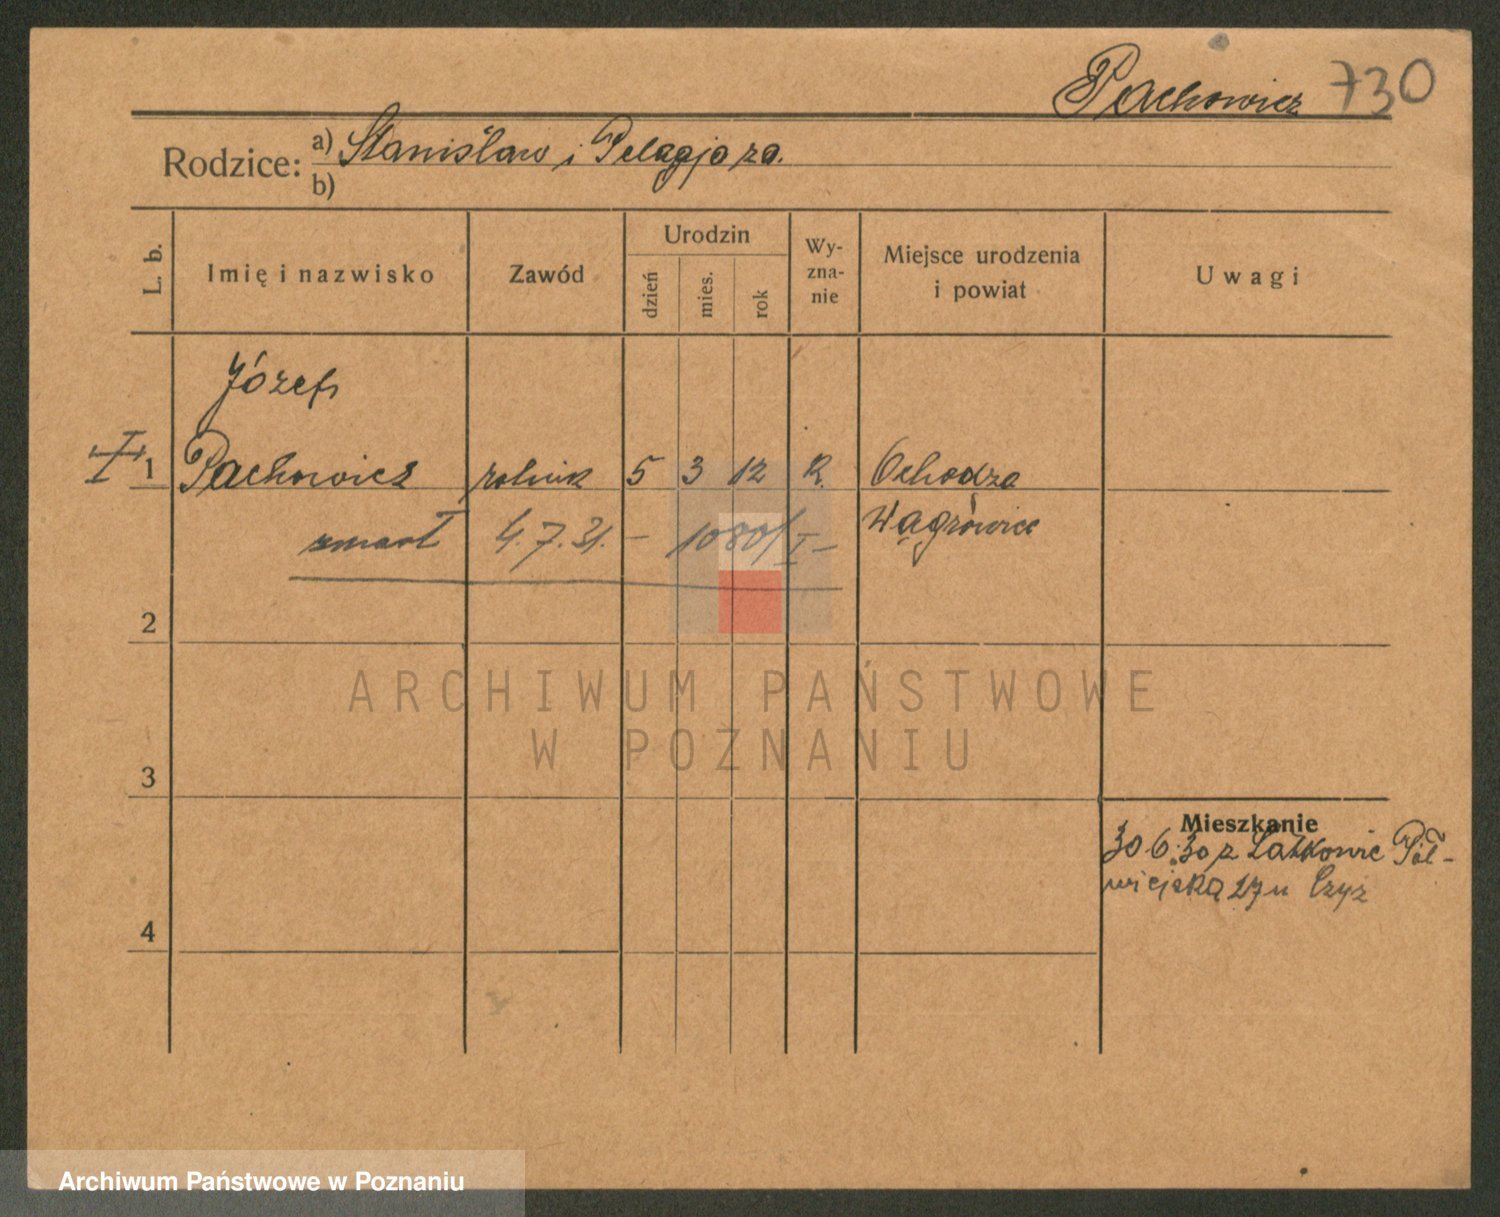 Pachowicz 730
Rodzice: a) Stanisław i Pelagja za.
b)
L. b.
Imię i nazwisko
Zawód
Urodzin
dzień
mies.
rok
Wy-
zna-
nie
Miejsce urodzenia
i powiat
Uwagi
Józef
1 Pachowicz rolnik 5 3 12 R. Ochodza
Wągrówiec
zmarł 4.7.31. – 1080/I –
2
3
4
Mieszkanie
30 6.30 z Pół-
wiejska 27 u Czyż
ARCHIWUM PAŃSTWOWE
W POZNANIU
Archiwum Państwowe w Poznaniu